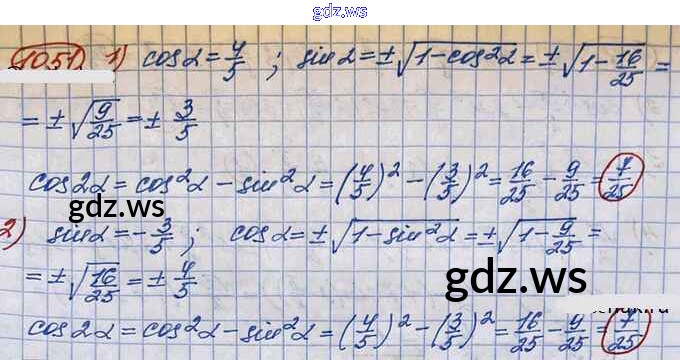 gdz.ws
1051 1) cos α = 4/5 ; sin α = ± √(1 − cos² α) = ± √(1 − 16/25) =
= ± √(9/25) = ± 3/5
cos 2α = cos² α − sin² α = (4/5)² − (3/5)² = 16/25 − 9/25 = 7/25
gdz.ws
2) sin α = − 3/5 ; cos α = ± √(1 − sin² α) = ± √(1 − 9/25) =
= ± √(16/25) = ± 4/5
gdz.ws
cos 2α = cos² α − sin² α = (4/5)² − (3/5)² = 16/25 − 9/25 = 7/25
gdz.ws